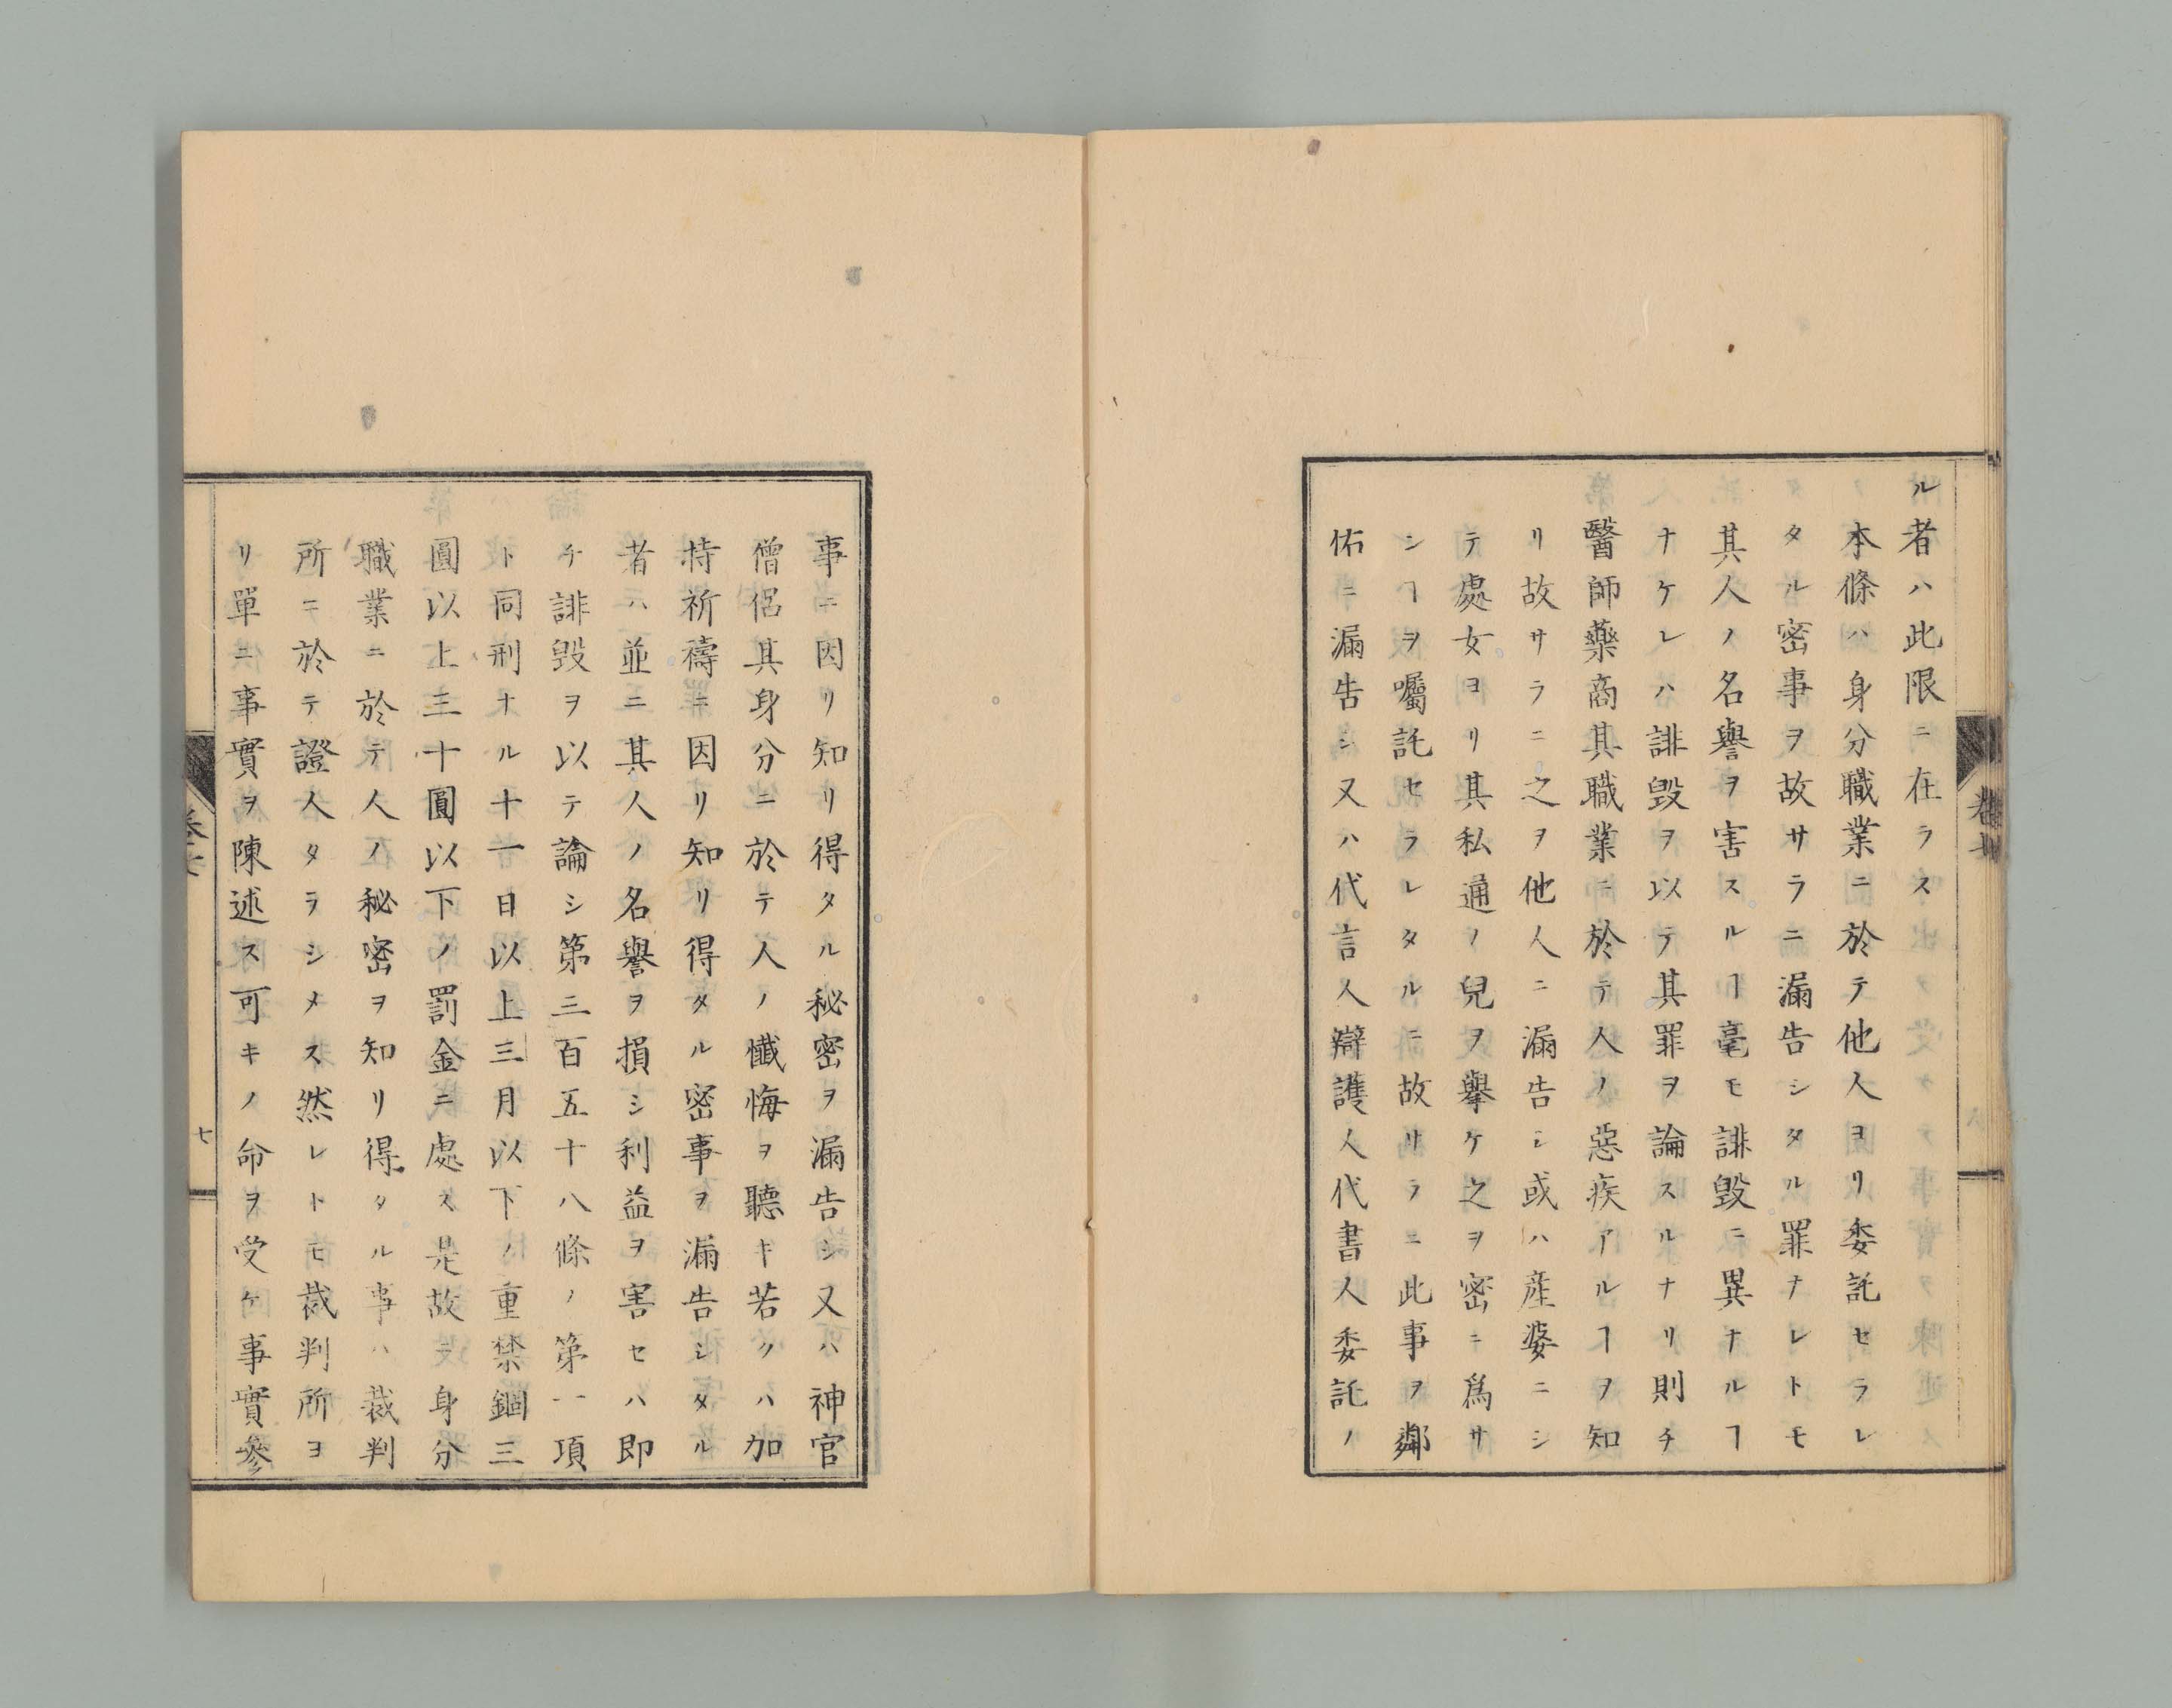 ル者ハ此限ニ在ラス
本條ハ身分職業ニ於テ他人ヨリ委託セラレ
タル密事ヲ故サラニ漏告シタル罪ナレトモ
其人ノ名譽ヲ害スルヿ毫モ誹毀ニ異ナルヿ
ナケレハ誹毀ヲ以テ其罪ヲ論スルナリ則チ
醫師藥商其職業ニ於テ人ノ惡疾アルヿヲ知
リ故サラニ之ヲ他人ニ漏告シ或ハ産婆ニシ
テ處女ヨリ其私通ノ兒ヲ擧ケ之ヲ密ニ爲サ
シヿヲ囑託セラレタルニ故サラニ此事ヲ鄰
佑ニ漏告シ又ハ代言人辯護人代書人委託ノ
卷七
事ニ因リ知リ得タル秘密ヲ漏告シ又ハ神官
僧侶其身分ニ於テ人ノ懺悔ヲ聽キ若クハ加
持祈禱ニ因リ知リ得タル密事ヲ漏告シタル
者ハ並ニ其人ノ名譽ヲ損シ利益ヲ害セハ即
チ誹毀ヲ以テ論シ第三百五十八條ノ第一項
ト同刑ナル十一日以上三月以下ノ重禁錮三
圓以上三十圓以下ノ罰金ニ處ス是故ニ身分
職業ニ於テ人ノ秘密ヲ知リ得タル事ハ裁判
所ニ於テ證人タラシメス然レトモ裁判所ヨ
リ單ニ事實ヲ陳述ス可キノ命ヲ受ケ事實參
七